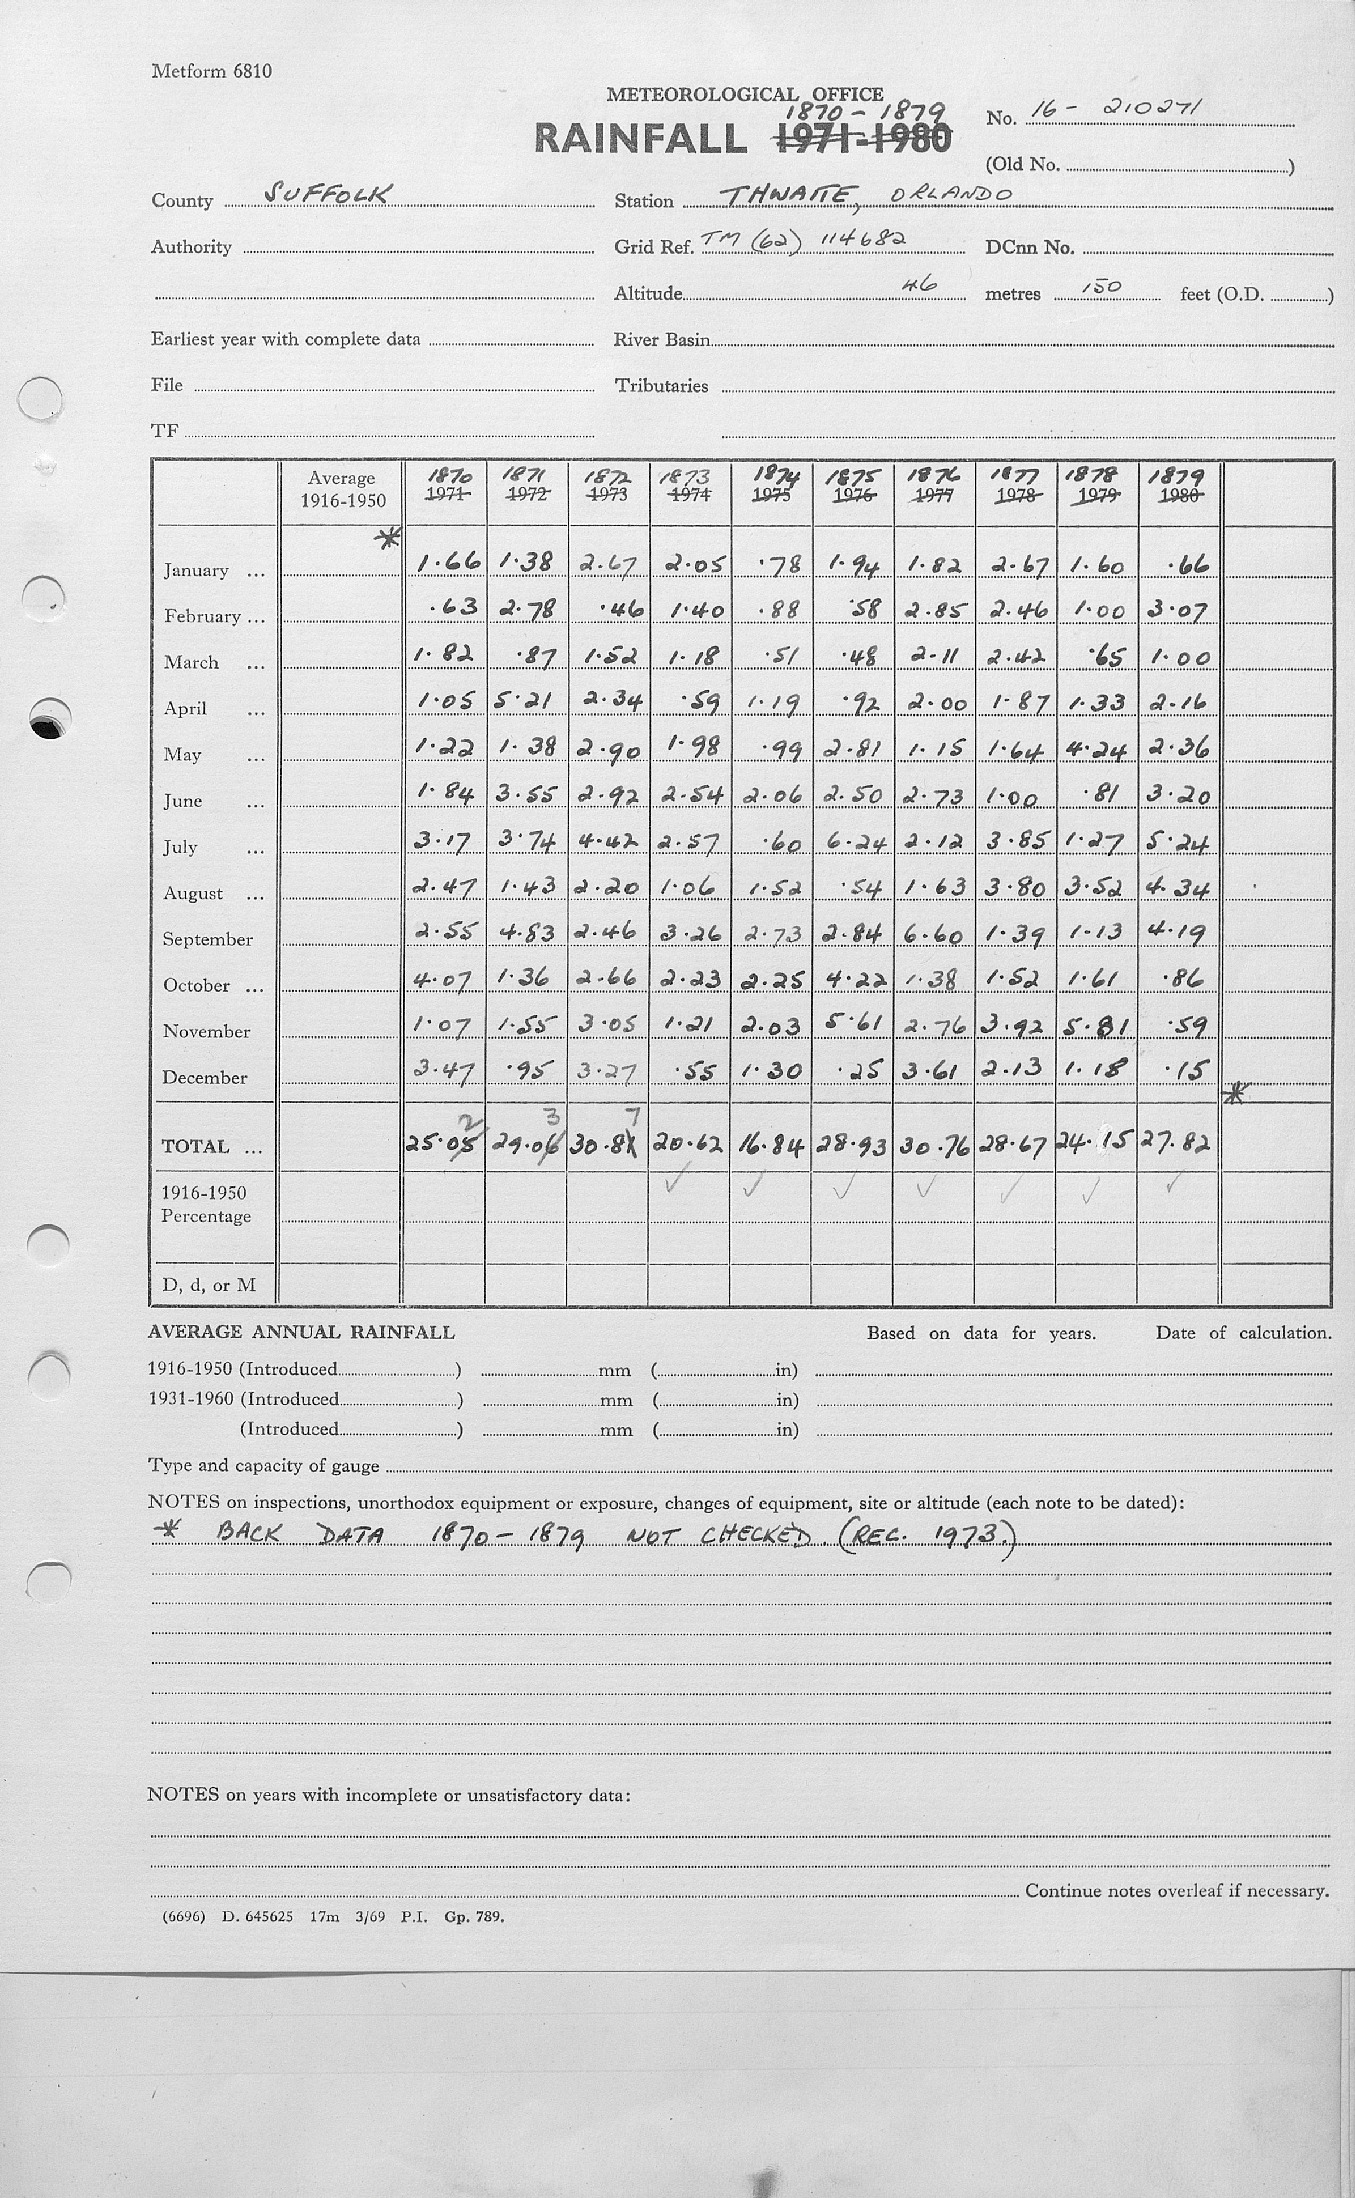 Metform 6810
METEOROLOGICAL OFFICE
1870 - 1879
RAINFALL 1971-1980
No. 16 - 210271
(Old No. )
County SUFFOLK Station THWAITE, ORLANDO
Authority Grid Ref. TM (62) 114682 DCnn No.
Altitude 46 metres 150 feet (O.D. )
Earliest year with complete data River Basin
File Tributaries
TF
Average 1870 1871 1872 1873 1874 1875 1876 1877 1878 1879
1916-1950 1971 1972 1973 1974 1975 1976 1977 1978 1979 1980
*
January ... 1.66 1.38 2.67 2.05 .78 1.94 1.82 2.67 1.60 .66
February ... .63 2.78 .46 1.40 .88 .58 2.85 2.46 1.00 3.07
March ... 1.82 .87 1.52 1.18 .51 .48 2.11 2.42 .65 1.00
April ... 1.05 5.21 2.34 .59 1.19 .92 2.00 1.87 1.33 2.16
May ... 1.22 1.38 2.90 1.98 .99 2.81 1.15 1.64 4.24 2.36
June ... 1.84 3.55 2.92 2.54 2.06 2.50 2.73 1.00 .81 3.20
July ... 3.17 3.74 4.42 2.57 .60 6.24 2.12 3.85 1.27 5.24
August ... 2.47 1.43 2.20 1.06 1.52 .54 1.63 3.80 3.52 4.34
September 2.55 4.83 2.46 3.26 2.73 2.84 6.60 1.39 1.13 4.19
October ... 4.07 1.36 2.66 2.23 2.25 4.22 1.38 1.52 1.61 .86
November 1.07 1.55 3.05 1.21 2.03 5.61 2.76 3.92 5.81 .59
December 3.47 .95 3.27 .55 1.30 .25 3.61 2.13 1.18 .15
*
2 3 7
TOTAL ... 25.05 29.06 30.81 20.62 16.84 28.93 30.76 28.67 24.15 27.82
1916-1950
Percentage
D, d, or M
AVERAGE ANNUAL RAINFALL Based on data for years. Date of calculation.
1916-1950 (Introduced ) mm ( in)
1931-1960 (Introduced ) mm ( in)
(Introduced ) mm ( in)
Type and capacity of gauge
NOTES on inspections, unorthodox equipment or exposure, changes of equipment, site or altitude (each note to be dated):
* BACK DATA 1870 - 1879 NOT CHECKED. (REC. 1973.)
NOTES on years with incomplete or unsatisfactory data:
Continue notes overleaf if necessary.
(6696) D. 645625 17m 3/69 P.I. Gp. 789.